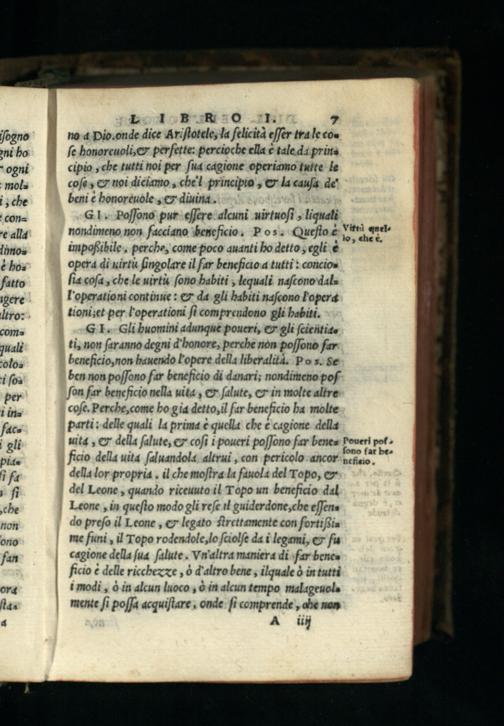 LIBRO I. 7
no a Dio. onde dice Aristotele, la felicità esser tra le co-
se honoreuoli, & perfette: percioche ella è tale da prin-
cipio, che tutti noi per sua cagione operiamo tutte le
cose, & noi diciamo, che'l principio, & la causa de'
beni è honoreuole, & diuina.
GI. Possono pur essere alcuni uirtuosi, liquali
nondimeno non facciano beneficio. Pos. Questo è
impossibile. perche, come poco auanti ho detto, egli è
opera di uirtù singolare il far beneficio a tutti: concio-
sia cosa, che le uirtù sono habiti, lequali nascono dal-
l'operationi continue: & da gli habiti nascono l'opera
tioni; et per l'operationi si comprendono gli habiti.
GI. Gli huomini adunque poueri, & gli scientia-
ti, non saranno degni d'honore, perche non possono far
beneficio, non hauendo l'opere della liberalità. Pos. Se
ben non possono far beneficio di danari; nondimeno pos
son far beneficio nella uita, & salute, & in molte altre
cose. Perche, come ho gia detto, il far beneficio ha molte
parti: delle quali la prima è quella che è cagione della
uita, & della salute, & cosi i poueri possono far bene-
ficio della uita saluandola altrui, con pericolo ancor
della lor propria. il che mostra la fauola del Topo, &
del Leone, quando riceuuto il Topo un beneficio dal
Leone, in questo modo gli rese il guiderdone, che essen-
do preso il Leone, & legato strettamente con fortissi-
me funi, il Topo rodendole, lo sciolse da i legami, & fu
cagione della sua salute. Vn'altra maniera di far bene-
ficio è delle ricchezze, ò d'altro bene, ilquale ò in tutti
i modi, ò in alcun luoco, ò in alcun tempo malageuol-
mente si possa acquistare, onde si comprende, che non
A iiij
Virtù quel-
lo, che è.
Poueri pos-
sono far be-
neficio.